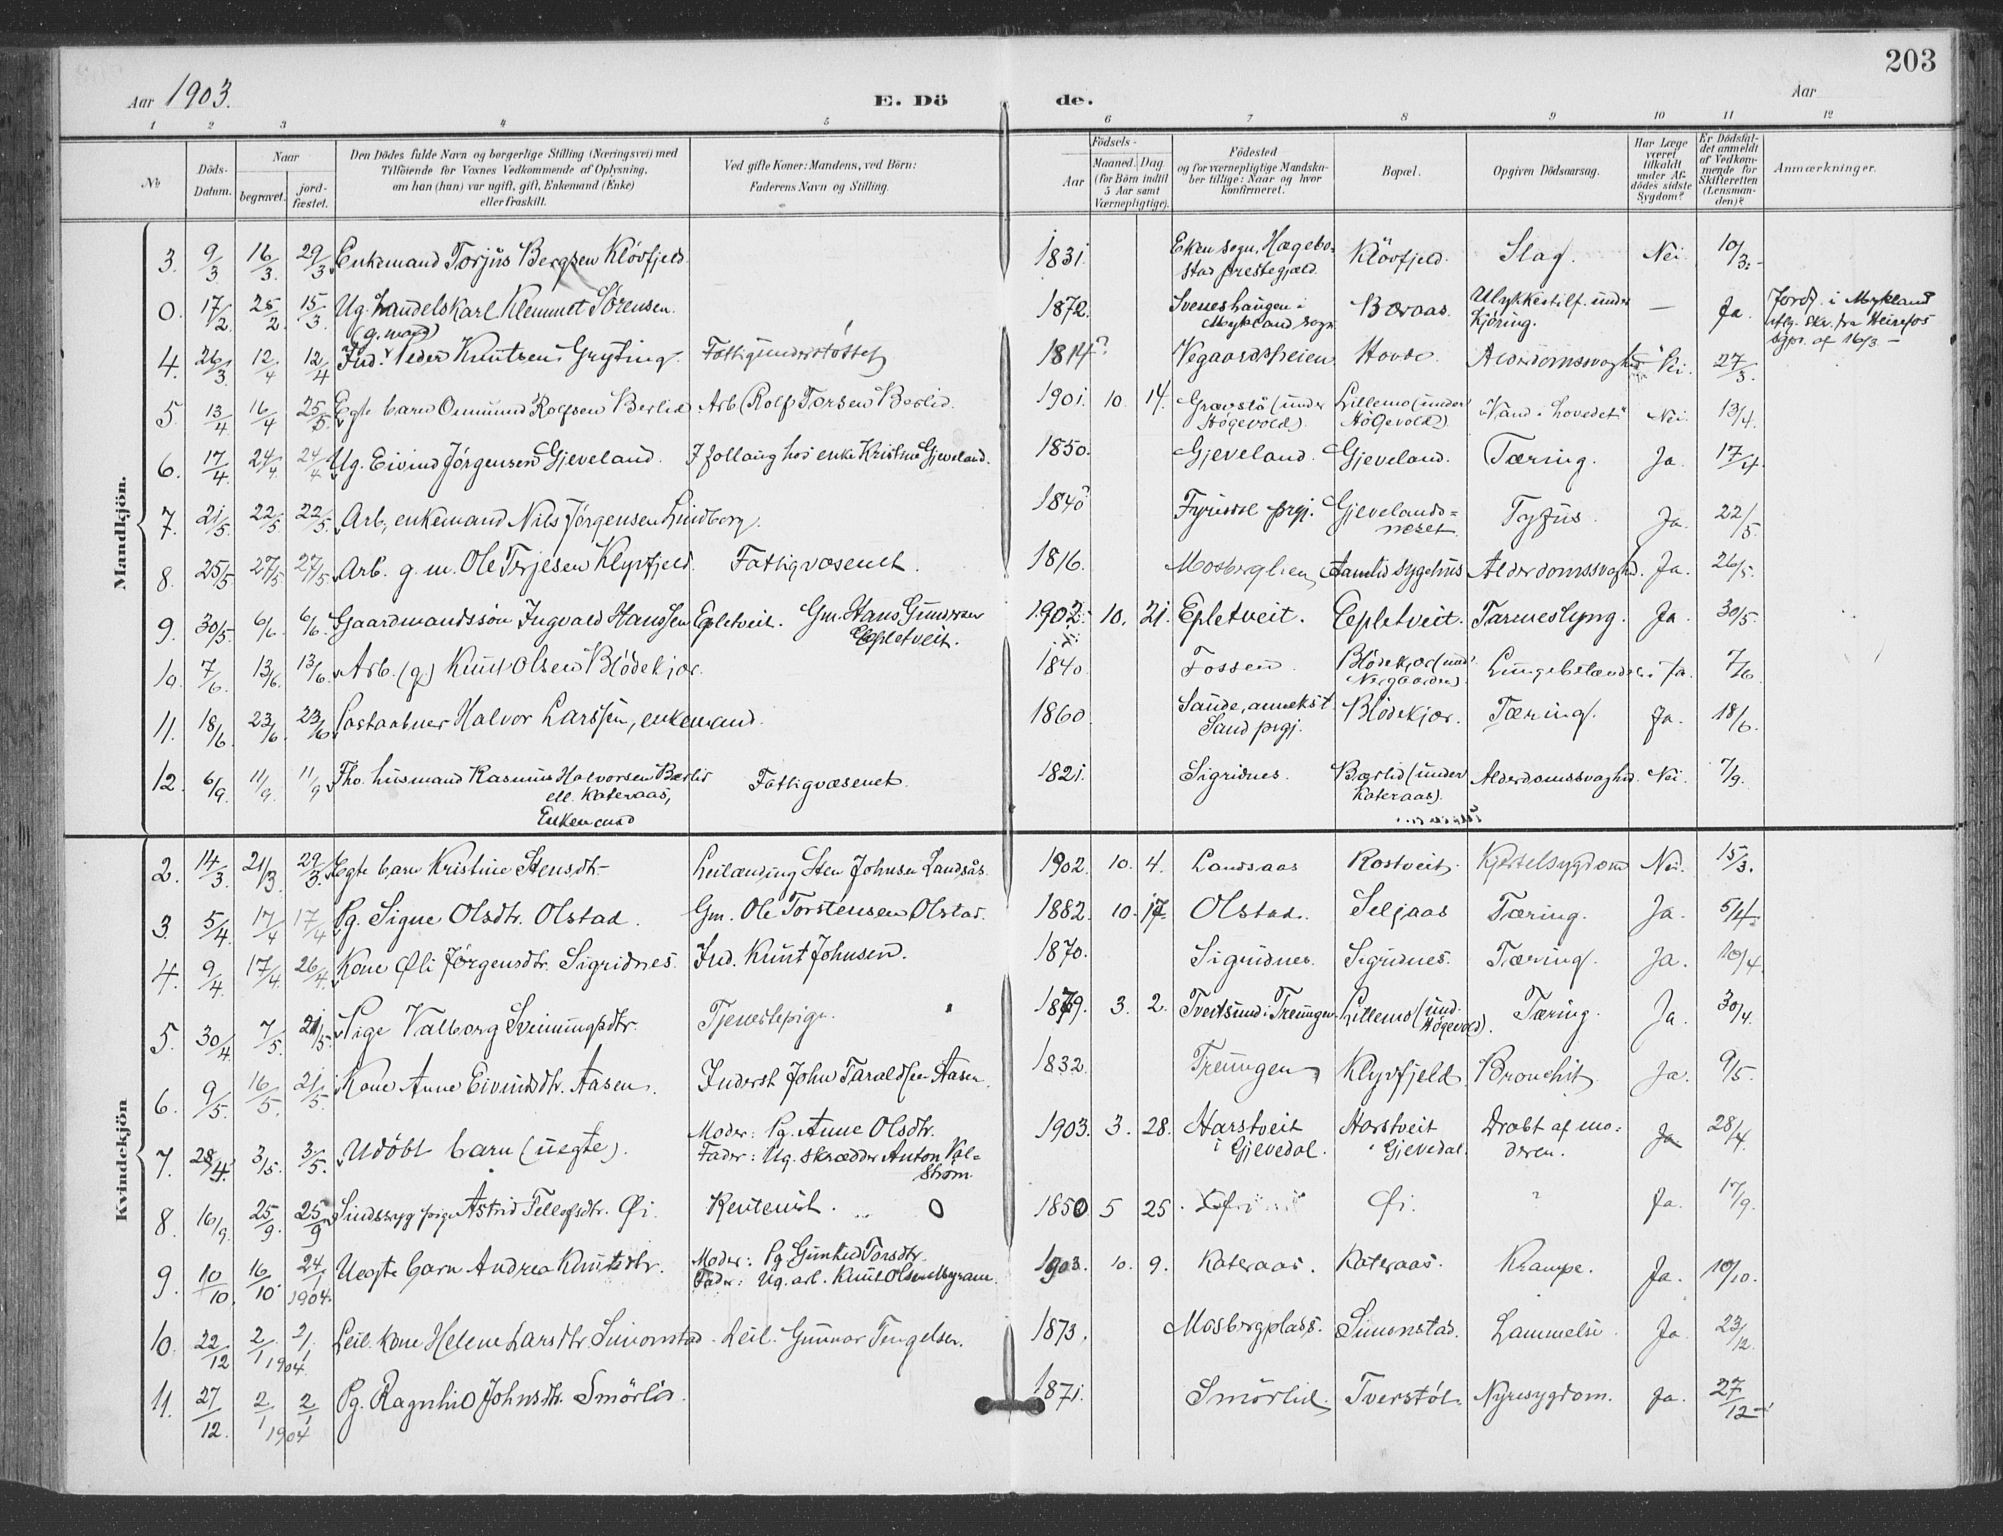 203
Aar 1903.
E. Dö de.
Aar
1 2 3 4 5 6 7 8 9 10 11 12
No
Döds-Datum.
Naar
begravet.
jord-fæstet.
Den Dödes fulde Navn og borgerlige Stilling (Næringsvei) med
Tilföiende for Voxnes Vedkommende af Oplysning,
om han (hun) var ugift, gift, Enkemand (Enke)
eller fraskilt.
Ved gifte Koner: Mandens, ved Börn:
Faderens Navn og Stilling.
Födsels-
Aar
Maaned. Dag
(for Börn indtil
5 Aar samt
Værnepligtige).
Födested
og for værnepligtige Mandska-
ber tillige: Naar og hvor
konfirmeret.
Bopæl.
Opgiven Dödsaarsag.
Har Læge
været
tilkaldt
under Af-
dödes sidste
Sygdom?
Er Dödsfal-
det anmeldt
af Vedkom-
mende for
Skifteretten
(Lensman-
den)?
Anmærkninger.
Mandkjön.
3. 9/3 16/3 29/3 Enkemand Torjus Bergsen Klövfjeld. 1831 Eken sogn, Hægebo-
stad prestegjæld Klövfjeld. Slag. Nei 10/3.
0. 17/2 25/2 15/3 Ug. handelskarl Klemmet Sörensen. 1872. Sveneshaugen i
Mykland sogn Bæraas Ulykkestilf. under
kjöring. — Ja. Jordf. i Mykland
4. 26/3 12/4 12/4 (g. mand)
Ind. Peder Knutsen Gryting. Fattigunderstöttet 1814? Vegaardsheien Hovde. Alderdomssvaghed Nei. 27/3.
5. 13/4 16/4 25/5 Egte barn Osmund Rolfsen Berlid Arb. Rolf Torsen Berlid. 1901. 10. 14. Gravstö (under
Högevold) Lillemo (under
Högevold) "Vand i hovedet" Nei. 13/4.
6. 17/4 24/4 24/4 Ug. Eivind Jörgensen Gjeveland. I follaug hos enke Kristine Gjeveland. 1850. Gjeveland. Gjeveland. Tæring. Ja. 17/4.
7. 21/5 22/5 22/5 Arb., enkemand Nils Jörgensen Lindborg. 1840? Fyrisdal prgj. Gjevelands=
neset Tyfus. Ja. 22/5.
8. 25/5 27/5 27/5 Arb. g. m. Ole Terjesen Klyvfjeld. Fattigvæsenet. 1816. Mosberglien Aamlid sygehus Alderdomssvaghd. Ja. 26/5.
9. 30/5 6/6. 6/6. Gaardmandssön Ingvald Hanssen Epletveit. Gm. Hans Gundersen
Epletveit. 1902. 10. 21. Epletveit. Epletveit. Tarmeslyng. Ja. 30/5.
10. 7/6 13/6. 13/6. Arb. (g.) Knut Olsen Blödekjær. 1840. Fossen. Blödekjær (und.
Nesgaarden) Lungebetændelse. Ja. 7/6
11. 18/6 23/6. 23/6 Postaabner Halvor Larssen, enkemand. 1860 Sande, annekst
Sand prgj. Blödekjær. Tæring. Ja. 18/6.
12. 6/9. 11/9. 11/9 Fho. husmand Rasmus Halvorsen Bærlid
ell. Kateraas,
Enkemand Fattigvæsenet. 1821. Sigridnes. Bærlid (under
Kateraas). Alderdomssvaghed. Nei. 7/9.
Kvindekjön
2. 14/3. 21/3. 29/3. Egte barn Kristine Stensdtr. Leilænding Sten Johnsen Landsås. 1902. 10. 4. Landsaas Rostveit. Kjertelsygdom Nei. 15/3.
3. 5/4. 17/4 17/4 Pg. Signe Olsdtr. Olstad. Gm. Ole Torstensen Olstad. 1882. 10. 17. Olstad. Seljaas Tæring. Ja. 5/4.
4. 9/4. 17/4. 26/4. Kone Øli Jørgensdtr. Sigridnes. Ind. Knut Johnsen. 1870. Sigridnes. Sigridnes. Tæring. Ja. 10/4.
5. 30/4 7/5. 21/5. Pige Valborg Sveinungsdtr. Tjenestepige. 1879. 3. 2. Tveitsund i Treungen Lillemo (und.
Högevold). Tæring. Ja. 30/4.
6. 9/5. 16/5. 21/5. Kone Anne Eivindsdtr. Aasen. Inderst John Taraldsen Aasen. 1832. Treungen Klyvfjeld Bronchit. Ja. 9/5.
7. 28/4. 3/5. 3/5. Udöbt barn (uegte). Moder: Pg. Anne Olsdtr.
Fader: Ug. skrædder Anton Pal=
ström. 1903. 3. 28. Harstveit
i Gjevedal. Harstveit
i Gjevedal. Dræbt af mo=
deren. Ja. 28/4.
8. 16/9. 25/9. 25/9 Sindssyg pige Astrid Tellefsdtr. Øi. Rentenist. 1850 5 25. Øi. ? Ja. 17/9.
9. 10/10. 16/10. 24/1 1904. Uegte barn Andrea Knutsdtr. Moder: Pg Gunhild Torsdtr.
Fader: Ug. arb. Knut Olsen 1903. 10. 9. Kateraas. Kateraas. Krampe. Ja. 10/10.
10. 22/12 2/1 2/1 1904. Leil. kone Helene Larsdtr. Simonstad. Leil. Gunnar Tengelsen. 1873. Mosbergplass. Simonstad. Lammelse. Ja. 23/12.
11. 27/12. 2/1 2/1 1904 Pg. Ragnhild Johnsdtr. Smörlid. 1871. Smörlid. Tverstöl. Nyresygdom. Ja. 27/12